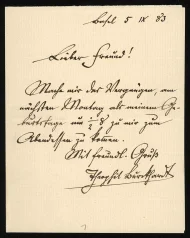 Basel 5 IX 83
Lieber Freund!
Mache mir das Vergnügen, am
nächsten Montag als meinem Ge-
burtstage um ½ 8 zu mir zum
Abendessen zu kommen.
Mit freundl. Gruß
Theophil Burckhardt